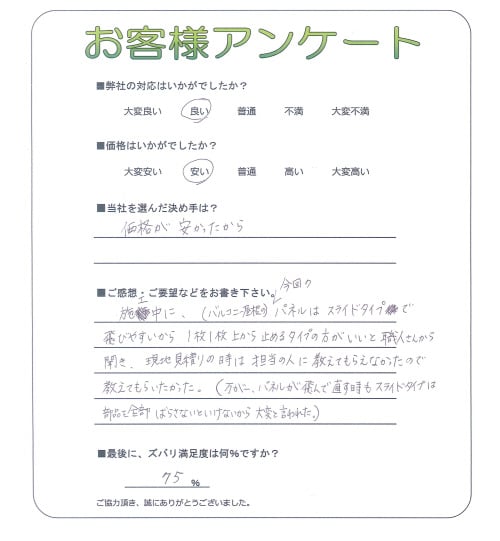 お客様アンケート
■弊社の対応はいかがでしたか？
大変良い 良い 普通 不満 大変不満
■価格はいかがでしたか？
大変安い 安い 普通 高い 大変高い
■当社を選んだ決め手は？
価格が 安かったから
■ご感想・ご要望などをお書き下さい。
今回の
施工中に、(バルコニー屋根の) パネルは スライドタイプで
飛びやすいから 1枚1枚上から止めるタイプの方がいいと 職人さんから
聞き、現地見積りの時は 担当の人に 教えてもらえなかったので
教えてもらいたかった。(万が一、パネルが飛んで直す時も スライドタイプは
部品を全部 ばらさないといけないから 大変と言われた。)
■最後に、ズバリ満足度は何％ですか？
75 ％
ご協力頂き、誠にありがとうございました。